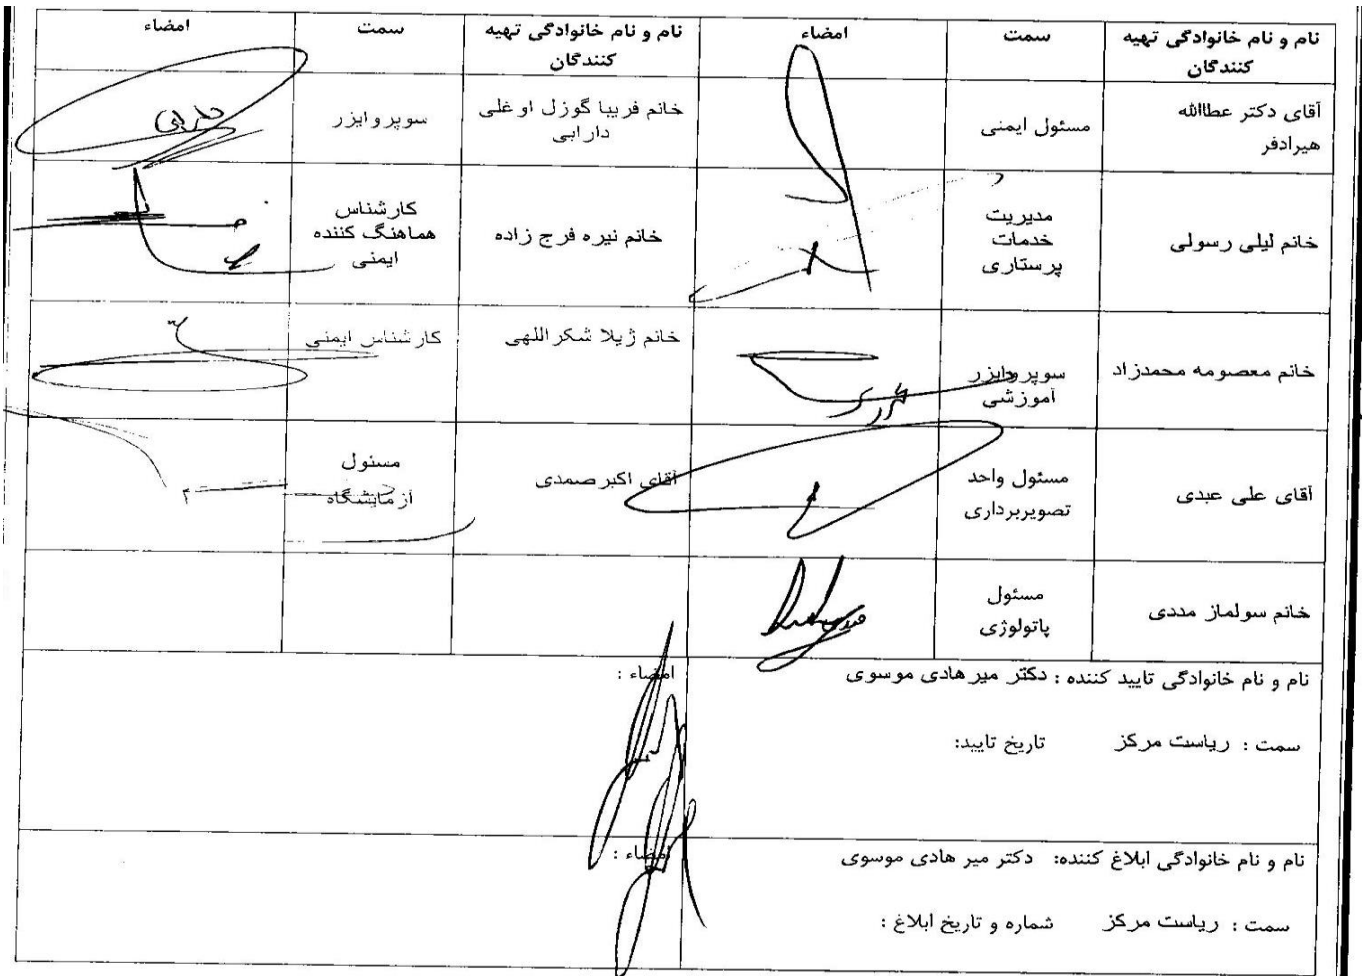 نام و نام خانوادگی تهیه
کنندگان
سمت
امضاء
نام و نام خانوادگی تهیه
کنندگان
سمت
امضاء
آقای دکتر عطاالله
هیرادفر
مسئول ایمنی
خانم فریبا گوزل اوغلی
دارابی
سوپروایزر
دارابی
خانم لیلی رسولی
مدیریت
خدمات
پرستاری
خانم نیره فرج زاده
کارشناس
هماهنگ کننده
ایمنی
خانم معصومه محمدزاد
سوپروایزر
آموزشی
خانم ژیلا شکراللهی
کارشناس ایمنی
آقای علی عبدی
مسئول واحد
تصویربرداری
آقای اکبرصمدی
مسئول
آزمایشگاه
خانم سولماز مددی
مسئول
پاتولوژی
نام و نام خانوادگی تایید کننده : دکتر میرهادی موسوی
امضاء :
سمت : ریاست مرکز تاریخ تایید:
نام و نام خانوادگی ابلاغ کننده: دکتر میر هادی موسوی
امضاء :
سمت : ریاست مرکز شماره و تاریخ ابلاغ :